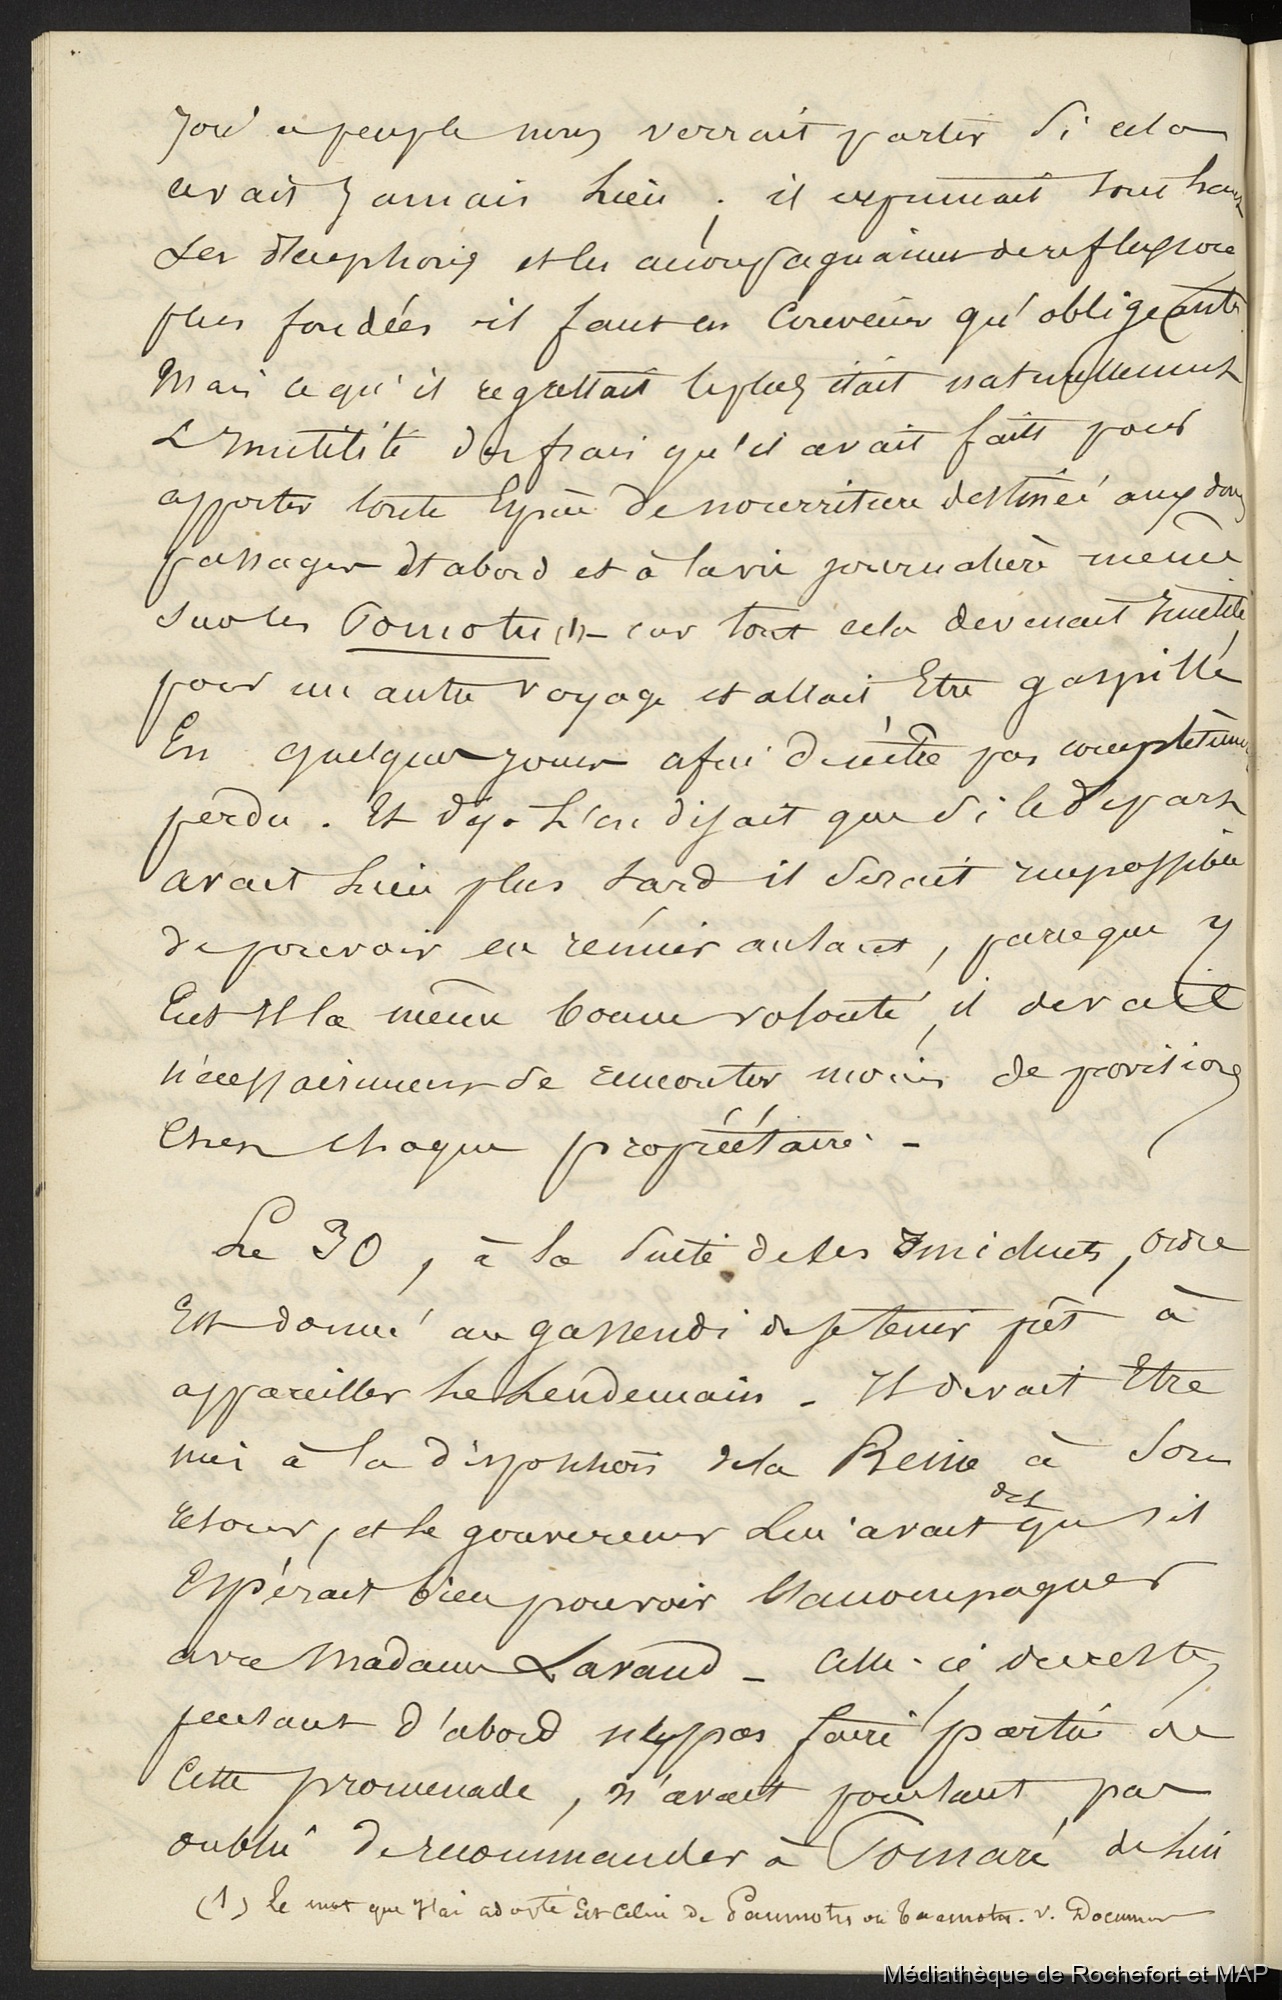 joie ce peuple nous verrait partir si cela
avait jamais lieu ; il exprimait tout haut
ses et les accompagnaient de reflexions
plus fondées il faut en convenir qu'obligeantes
Mais ce qu'il regrettait le plus était naturellement
L'Inutilité des frais qu'il avait faits pour
apporter toute Espèce de nourriture destinée aux dons
passager d'abord et à la vie journalière même
sur les Pomotu (1) - car tout cela devenait Inutile
pour un autre voyage et allait Etre gaspillé
En quelques jours afin de n'être pas complètement
perdu . Et déja L'on disait que si le départ
avait Lieu plus tard il serait impossible
de pouvoir en réunir autant , parceque y
Eut Il la même bonne volonté , il devait
nécessairement se rencontrer moins de provisions
Chez chaque propriétaire . -
Le 30 , à la suite de ses Incidents , ordre
Est donné au gassendi de se tenir prêt à
appareiller Le Lendemain - Il devait Etre
mis à la disposition de la Reine à son
retour , et le gouverneur Lui avait dit qu'il
Espérait bien pouvoir l'accompagner
avec Madame Lavaud - Celle-ci du reste,
pensant d'abord n'y pas faire partie de
Cette promenade , n'avait pourtant pas
oublié de recommander à Pomaré de lui
(1) Le mot que j'ai adopté Est Celui de Paumotu ou Tuamotu . v. Document
Médiathèque de Rochefort et MAP